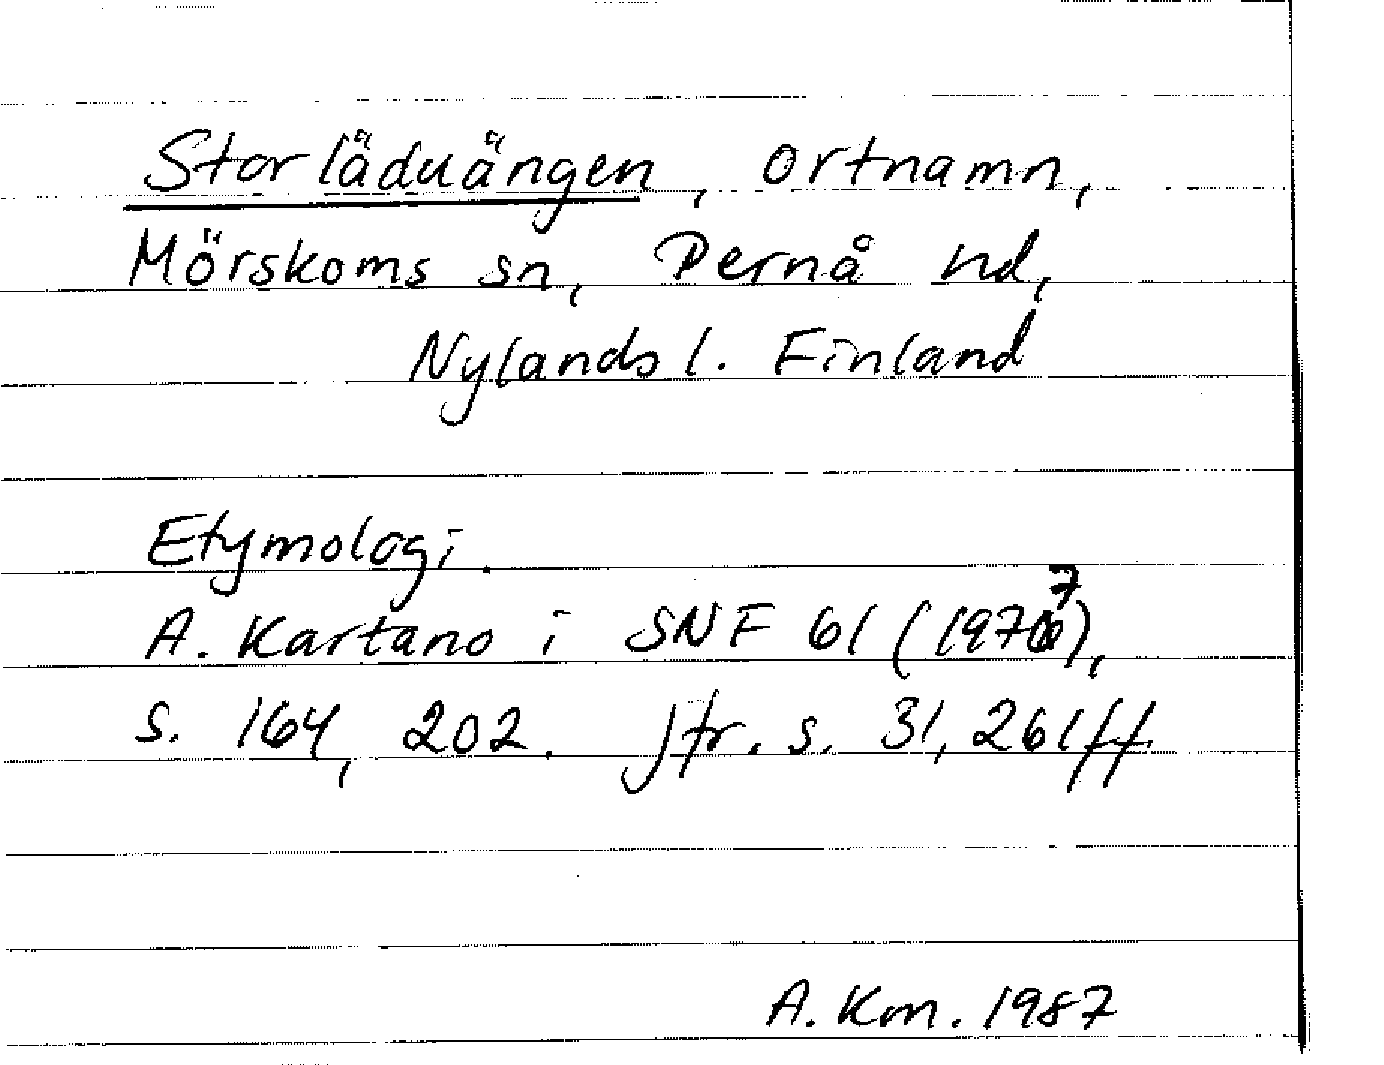 Storläduängen, ortnamn,
Mörskoms sn, Pernå hd,
Nylands l. Finland
Etymologi.
A. Kartano i SNF 61 (1977),
s. 164, 202. Jfr. s. 31, 261 ff
A. Km. 1987